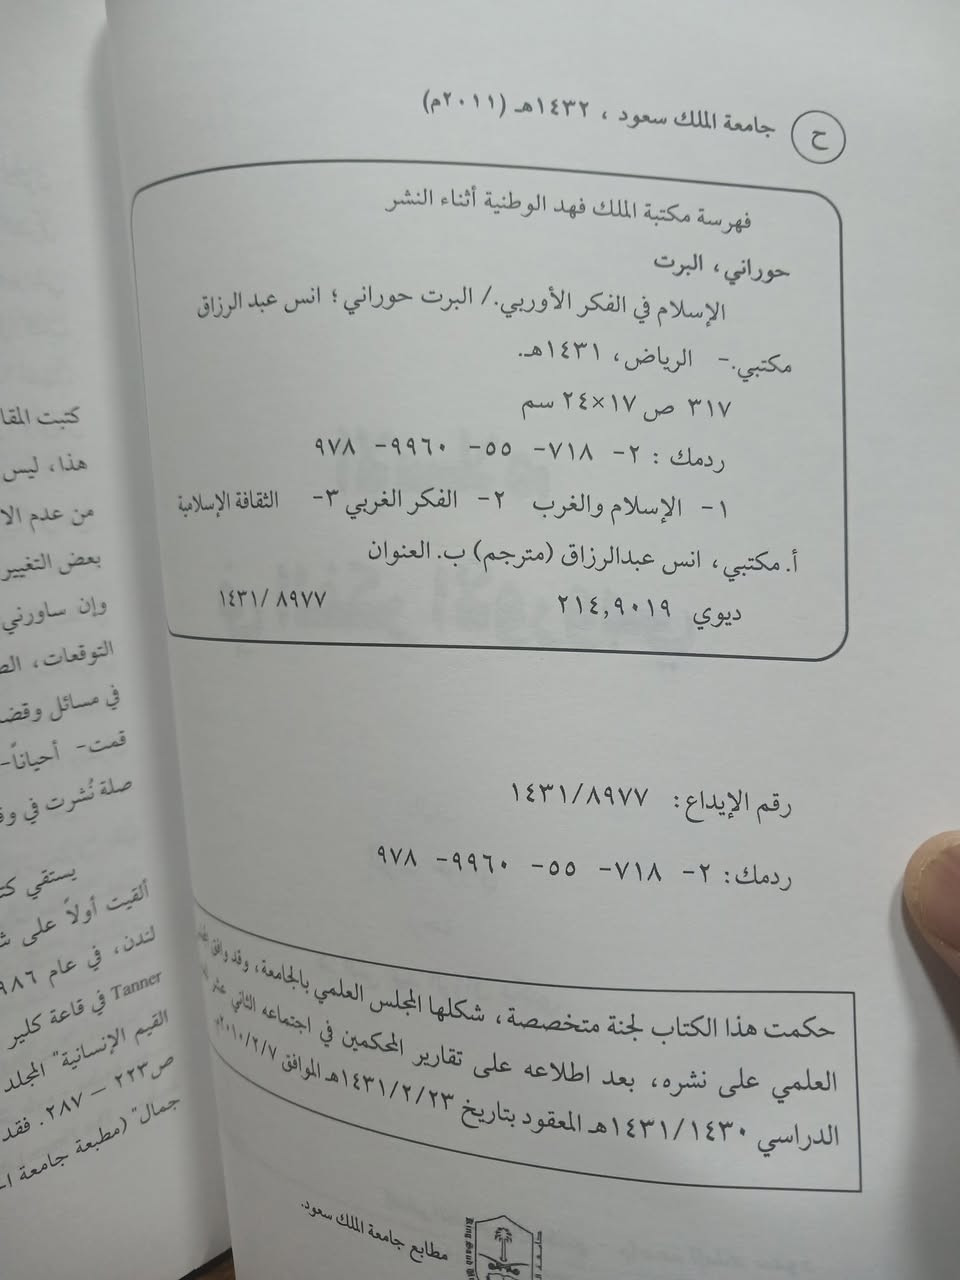 ح جامعة الملك سعود ، ١٤٣٢هـ (٢٠١١م)
فهرسة مكتبة الملك فهد الوطنية أثناء النشر
حوراني، البرت
الإسلام في الفكر الأوربي./ البرت حوراني ؛ انس عبد الرزاق
مكتبي.- الرياض، ١٤٣١هـ.
٣١٧ ص ١٧×٢٤ سم
ردمك : ٢- ٧١٨- ٥٥- ٩٩٦٠- ٩٧٨
١- الإسلام والغرب ٢- الفكر الغربي ٣- الثقافة الإسلامية
أ. مكتبي، انس عبدالرزاق (مترجم) ب. العنوان
ديوي ٢١٤,٩٠١٩ ١٤٣١/٨٩٧٧
رقم الإيداع: ١٤٣١/٨٩٧٧
ردمك: ٢- ٧١٨- ٥٥- ٩٩٦٠- ٩٧٨
حكمت هذا الكتاب لجنة متخصصة، شكلها المجلس العلمي بالجامعة، وقد وافق
العلمي على نشره، بعد اطلاعه على تقارير المحكمين في اجتماعه الثاني عشر
الدراسي ١٤٣١/١٤٣٠هـ المعقود بتاريخ ١٤٣١/٢/٢٣هـ الموافق ٢٠١٠/٢/٧م
مطابع جامعة الملك سعود.
كتبت
هذا، ليس
من عدم
بعض التغيير
وإن ساورني
التوقعات،
في مسائل
قمت- أحياناً-
صلة نُشرت في
يستقي
ألقيت أولاً على
لندن، في عام
Tanner في قاعة كلير
القيم الإنسانية" المجلد
ص٢٢٣ – ٢٨٧. فقد
جمال" (مطبعة جامعة